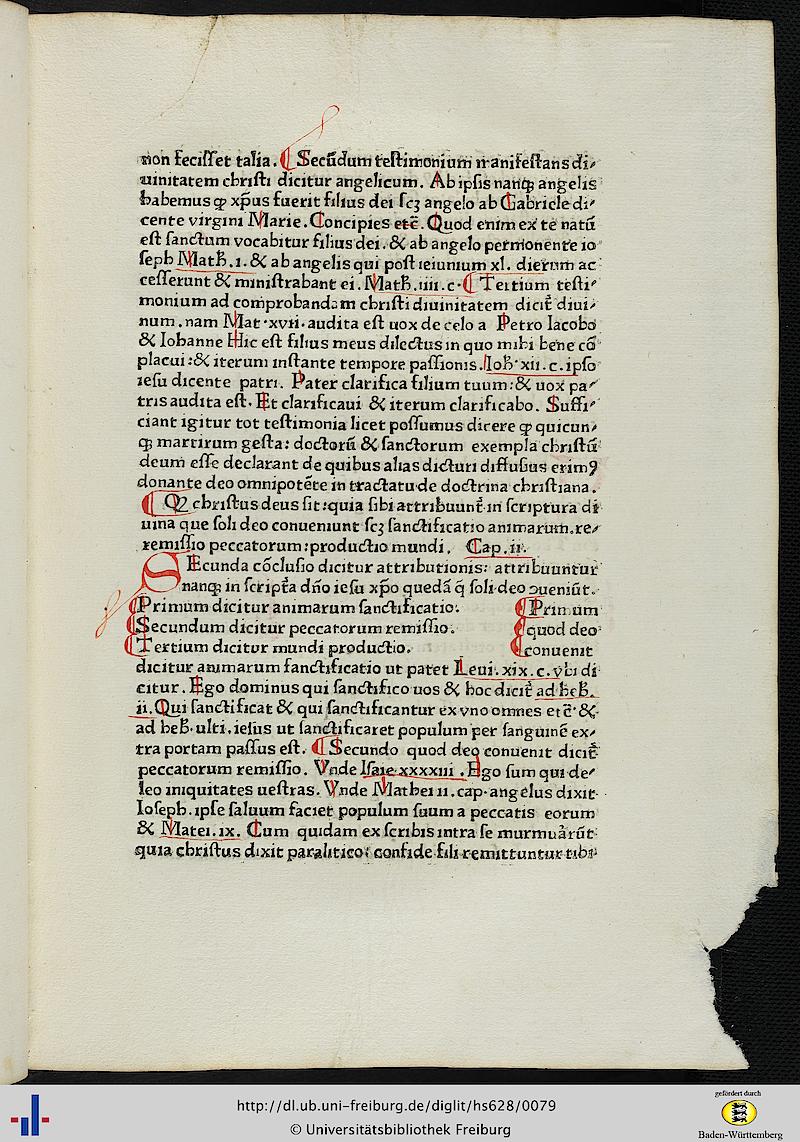 non feciſſet talia. ¶ Secūdum teſtimonium manifeſtans di⸗
uinitatem chriſti dicitur angelicum. Ab ipſis nanqȝ angelis
habemus ꝙ xp̄us fuerit filius dei ſcȝ angelo ab Gabriele di⸗
cente virgini Marie. Concipies etc̄. Quod enim ex te natū
eſt ſanctum vocabitur filius dei. & ab angelo permonente io
ſeph Matħ.1. & ab angelis qui poſt ieiunium xl. dierum ac
ceſſerunt & miniſtrabant ei. Matħ.iiii.c. ¶ Tertium teſti⸗
monium ad comprobandam chriſti diuinitatem dicit̃ diui⸗
num. nam Mat.xvii. audita eſt uox de celo a Petro Iacobo
& Iohanne Hic eſt filius meus dilectus in quo mihi bene cō
placui: & iterum inſtante tempore paſſionis. Ioħ.xii.c. ipſo
ieſu dicente patri. Pater clarifica filium tuum: & uox pa⸗
tris audita eſt. Et clarificaui & iterum clarificabo. Suffi⸗
ciant igitur tot teſtimonia licet poſſumus dicere ꝙ quicun⸗
qȝ martirum geſta: doctorū & ſanctorum exempla chriſtū
deum eſſe declarant de quibus alias dicturi diffuſius erimꝰ
donante deo omnipotēte in tractatu de doctrina chriſtiana.
¶ Qꝫ chriſtus deus ſit: quia ſibi attribuunt̃ in ſcriptura di
uina que ſoli deo conueniunt ſcȝ ſanctificatio animarum. re⸗
remiſſio peccatorum: productio mundi. Cap.ii.
SEcunda cōcluſio dicitur attributionis: attribuuntur
nanqȝ in ſcript̃a dño ieſu xp̄o quedā q̄ ſoli deo ↄueniūt.
¶ Primum dicitur animarum ſanctificatio. ¶ Primum
¶ Secundum dicitur peccatorum remiſſio. ¶ quod deo
¶ Tertium dicitur mundi productio. ¶ conuenit
dicitur animarum ſanctificatio ut patet Leui.xix.c. vbi di
citur. Ego dominus qui ſanctifico uos & hoc dicit̃ ad heƀ.
ii. Qui ſanctificat & qui ſanctificantur ex vno omnes etc̄. &
ad heƀ. ulti. ieſus ut ſanctificaret populum per ſanguinē ex⸗
tra portam paſſus eſt. ¶ Secundo quod deo conuenit dicit̃
peccatorum remiſſio. Vnde Iſaie xxxxiii. Ego ſum qui de⸗
leo iniquitates ueſtras. Vnde Mathei ii. cap. angelus dixit
Ioſeph. ipſe ſaluum faciet populum ſuum a peccatis eorum
& Matei.ix. Cum quidam ex ſcribis intra ſe murmuarūt
quia chriſtus dixit paralitico: confide fili remittuntur tibi
http://dl.ub.uni-freiburg.de/diglit/hs628/0079
© Universitätsbibliothek Freiburg
gefördert durch
Baden-Württemberg